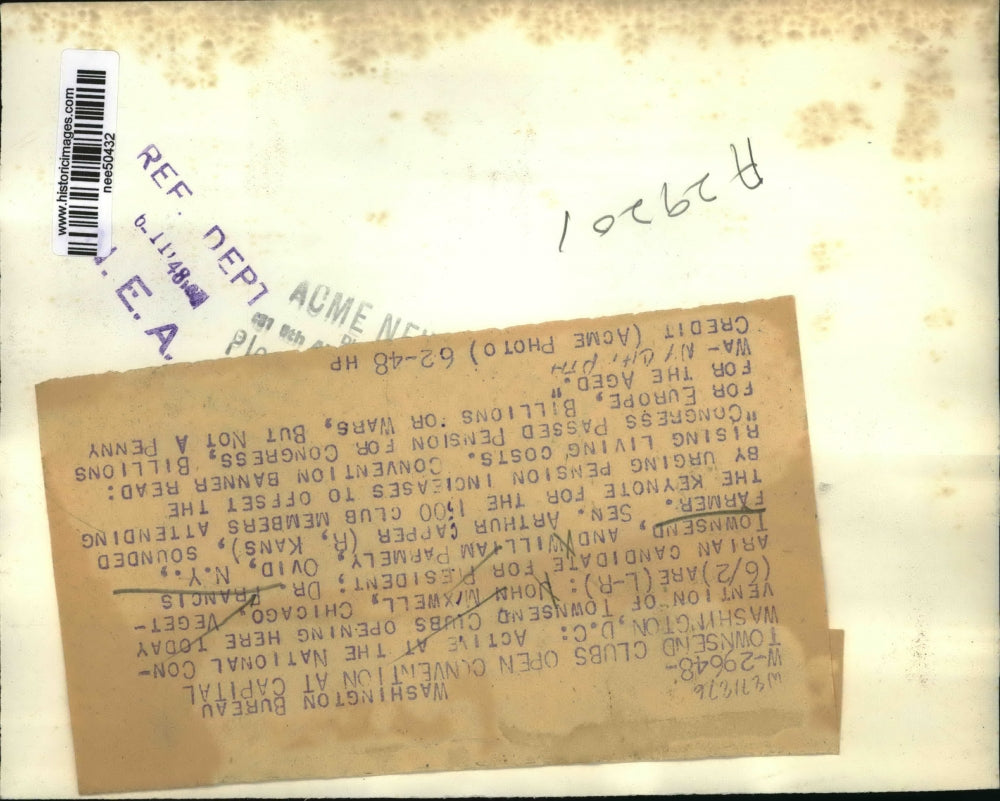 www.historicimages.com
nee50432
REF. DEPT
6-11-48
N. E. A.
ACME NEW
A29201
WASHINGTON BUREAU
W871876
W-29648-
TOWNSEND CLUBS OPEN CONVENTION AT CAPITAL
WASHINGTON, D.C: ACTIVE AT THE NATIONAL CON-
VENTION OF TOWNSEND CLUBS OPENING HERE TODAY
(6/2)ARE(L-R): JOHN MAXWELL, CHICAGO, VEGET-
ARIAN CANDIDATE FOR PRESIDENT; DR. FRANCIS
TOWNSEND, AND WILLIAM PARMELY, OVID, N.Y.,
FARMER. SEN. ARTHUR CAPPER (R, KANS), SOUNDED
THE KEYNOTE FOR THE CLUB MEMBERS ATTENDING
BY URGING PENSION INCREASES TO OFFSET THE
RISING LIVING COSTS. CONVENTION BANNER READ:
"CONGRESS PASSED PENSION FOR CONGRESS, BILLIONS
FOR EUROPE, BILLIONS FOR WARS, BUT NOT A PENNY
FOR THE AGED."
WA-NY
CREDIT (ACME PHOTO) 62-48 HP